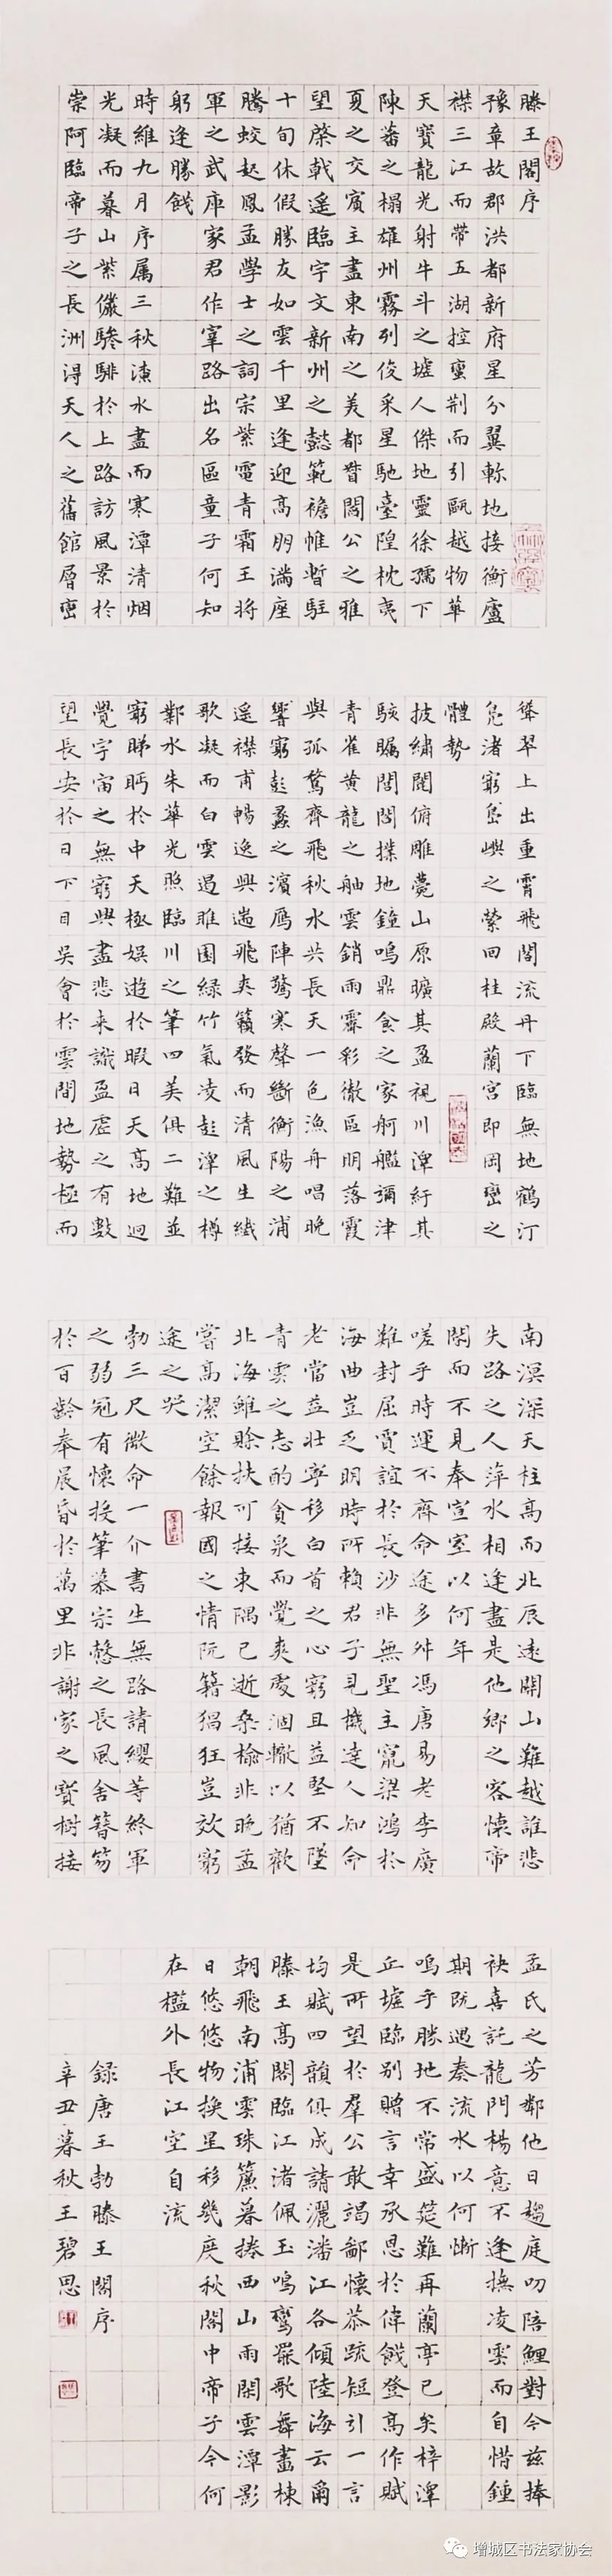 滕王閣序
豫章故郡洪都新府星分翼軫地接衡廬
襟三江而帶五湖控蠻荊而引甌越物華
天寶龍光射牛斗之墟人傑地靈徐孺下
陳蕃之榻雄州霧列俊采星馳臺隍枕夷
夏之交賓主盡東南之美都督閻公之雅
望棨戟遙臨宇文新州之懿範襜帷暫駐
十旬休假勝友如雲千里逢迎高朋滿座
騰蛟起鳳孟學士之詞宗紫電青霜王將
軍之武庫家君作宰路出名區童子何知
躬逢勝餞
時維九月序屬三秋潦水盡而寒潭清烟
光凝而暮山紫儼驂騑於上路訪風景於
崇阿臨帝子之長洲得天人之舊館層巒
聳翠上出重霄飛閣流丹下臨無地鶴汀
鳧渚窮島嶼之縈回桂殿蘭宮即岡巒之
體勢
披繡闥俯雕甍山原曠其盈視川澤紆其
駭矚閭閻撲地鐘鳴鼎食之家舸艦彌津
青雀黃龍之舳雲銷雨霽彩徹區明落霞
與孤鶩齊飛秋水共長天一色漁舟唱晚
響窮彭蠡之濱雁陣驚寒聲斷衡陽之浦
遙襟甫暢逸興遄飛爽籟發而清風生纖
歌凝而白雲遏睢園綠竹氣凌彭澤之樽
鄴水朱華光照臨川之筆四美俱二難並
窮睇眄於中天極娛遊於暇日天高地迥
覺宇宙之無窮興盡悲來識盈虛之有數
望長安於日下目吳會於雲間地勢極而
南溟深天柱高而北辰遠關山難越誰悲
失路之人萍水相逢盡是他鄉之客懷帝
閽而不見奉宣室以何年
嗟乎時運不齊命途多舛馮唐易老李廣
難封屈賈誼於長沙非無聖主竄梁鴻於
海曲豈乏明時所賴君子見機達人知命
老當益壯寧移白首之心窮且益堅不墜
青雲之志酌貪泉而覺爽處涸轍以猶歡
北海雖賒扶可接東隅已逝桑榆非晚孟
嘗高潔空餘報國之情阮籍猖狂豈效窮
途之哭
勃三尺微命一介書生無路請纓等終軍
之弱冠有懷投筆慕宗愨之長風舍簪笏
於百齡奉晨昏於萬里非謝家之寶樹接
孟氏之芳鄰他日趨庭叨陪鯉對今茲捧
袂喜託龍門楊意不逢撫凌雲而自惜鍾
期既遇奏流水以何慚
嗚乎勝地不常盛筵難再蘭亭已矣梓澤
丘墟臨別贈言幸承恩於偉餞登高作賦
是所望於羣公敢竭鄙懷恭疏短引一言
均賦四韻俱成請灑潘江各傾陸海云爾
滕王高閣臨江渚佩玉鳴鸞罷歌舞畫棟
朝飛南浦雲珠簾暮捲西山雨閑雲潭影
日悠悠物換星移幾度秋閣中帝子今何
在檻外長江空自流
錄唐王勃滕王閣序
辛丑暮秋王碧思
增城区书法家协会